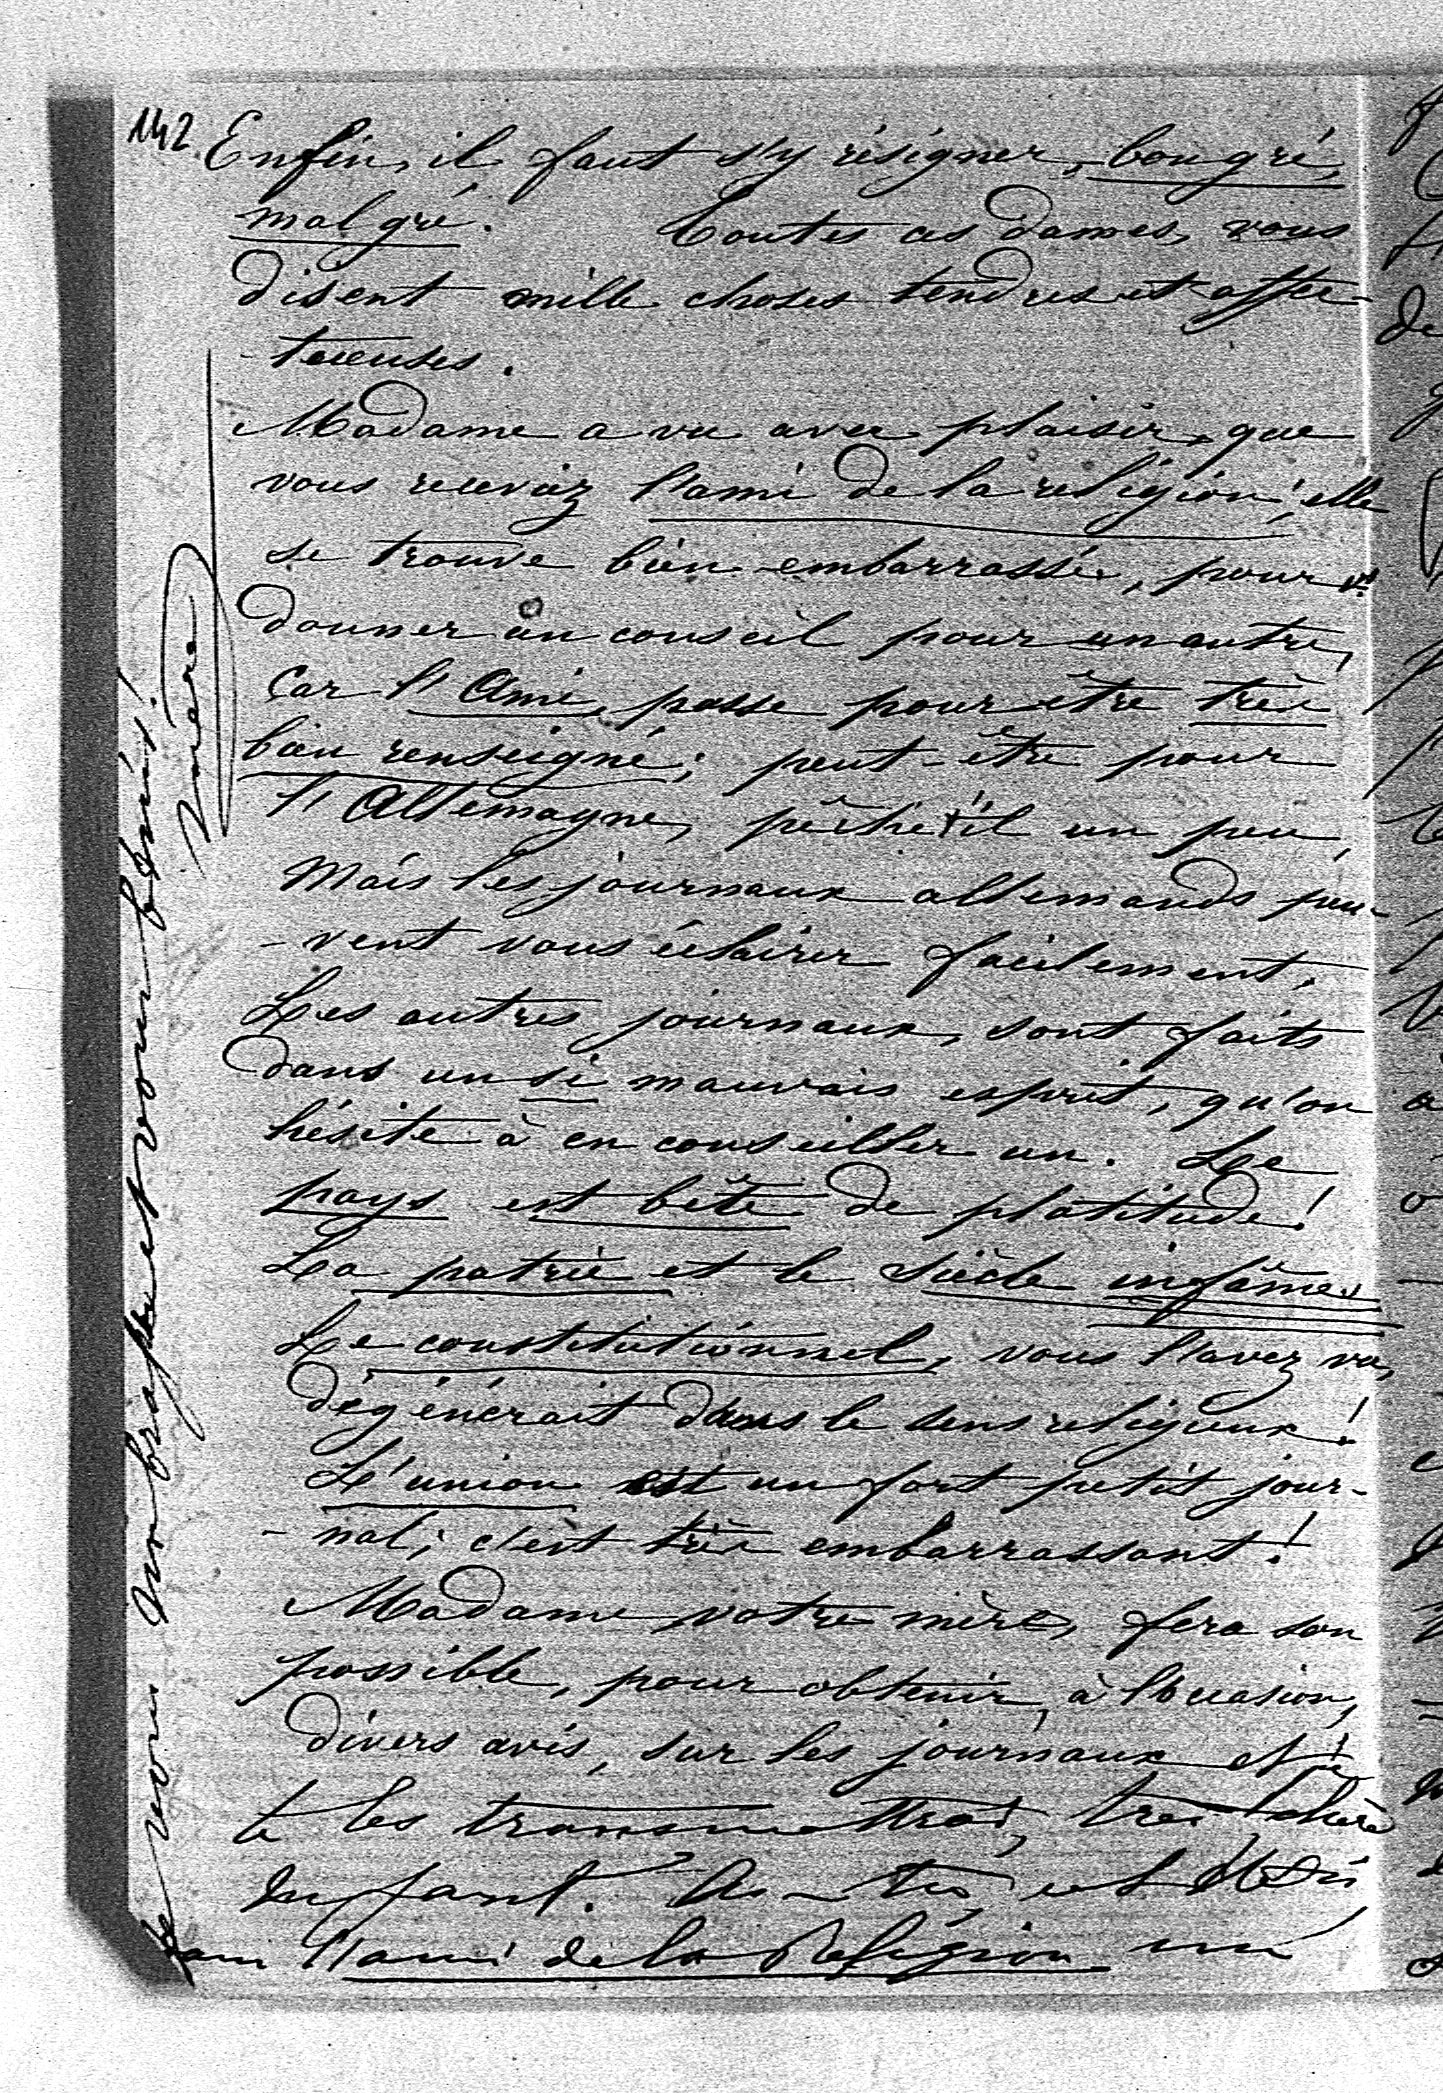 142.
Enfin, il faut s'y résigner, bon gré,
malgré. Toutes ces dames, vous
disent mille choses tendres et affec-
-tueuses.
Madame a vu avec plaisir, que
vous receviez l'ami de la religion; elle
se trouve bien embarrassée, pour vs
donner un conseil pour un autre,
Car l'Ami, passe pour être très
bien renseigné; peut-être pour
l'Allemagne, pêche t'il un peu,
Mais les journaux allemands peu-
-vent vous éclairer facilement.
Les autres journaux, sont faits
dans un si mauvais esprit, qu'on
hésite à en conseiller un. Le
pays est bête de platitude!
La patrie et le Siècle infâmes
Le constitutionnel, vous l'avez vu,
dégénérait dans le sens religieux!
L'union est un fort petit jour-
-nal; c'est très embarrassant!
Madame votre mère, fera son
possible, pour obtenir, à l'occasion,
divers avis, sur les journaux et je
te les transmettrai, très chère
Enfant. As-tu
dans l'ami de la Religion un
Je vous embrasse et vous bénis!
mère